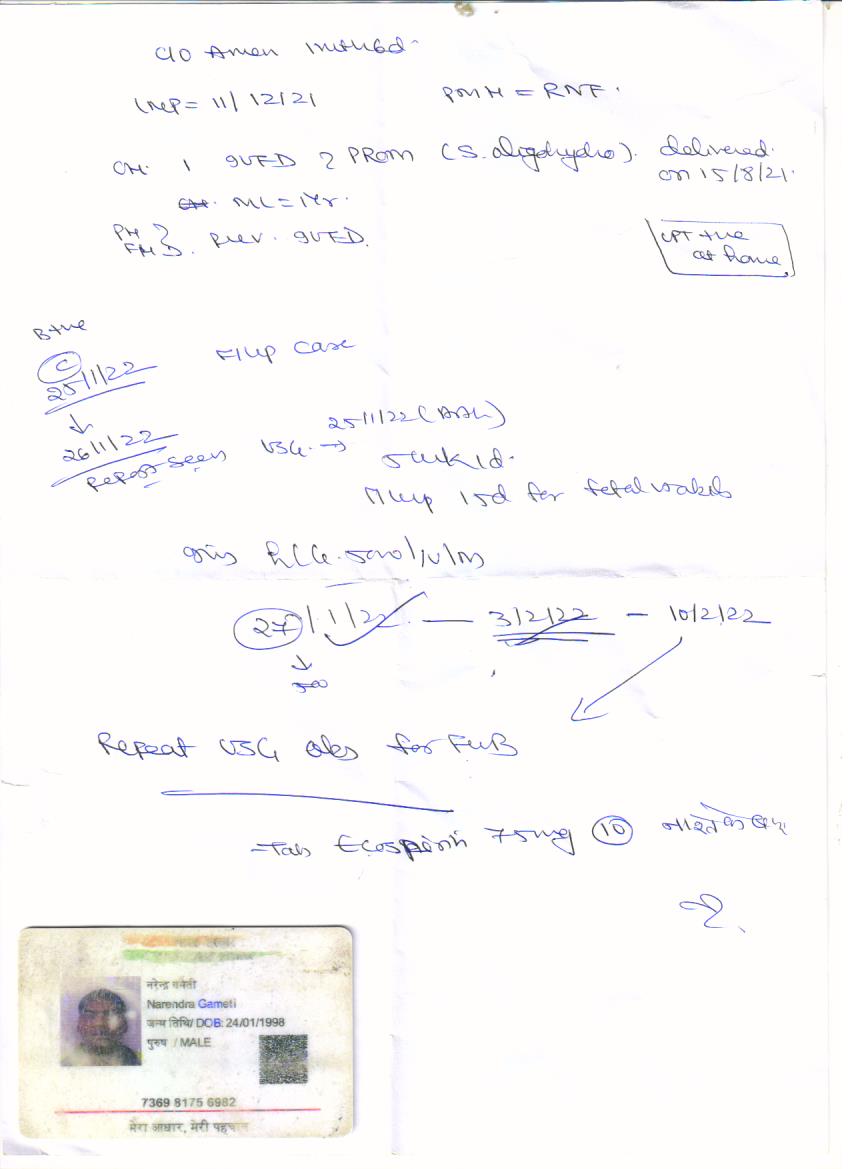 C/O Amen
LMP = 11/12/21
PMH = RNF.
OH. 1 9UFD 2 PROM (S. oligohydro). delivered on 15/8/21.
ML = 1Yr.
PH
FH prev. 9UFD.
UPT +ve
at home
B+ve
C
25/1/22
F/up case
26/1/22
Report seen
USG. → 25/1/22
5wk 1d.
15d for fetal
HCG. 5000/
27/1/22. — 3/2/22 — 10/2/22
Repeat USG obs for FWB
Tab Ecosprin 75mg 10 नाश्ते के बाद
नरेन्द्र गमेती
Narendra Gameti
जन्म तिथि/ DOB: 24/01/1998
पुरुष / MALE
7369 8175 6982
मेरा आधार, मेरी पहचान